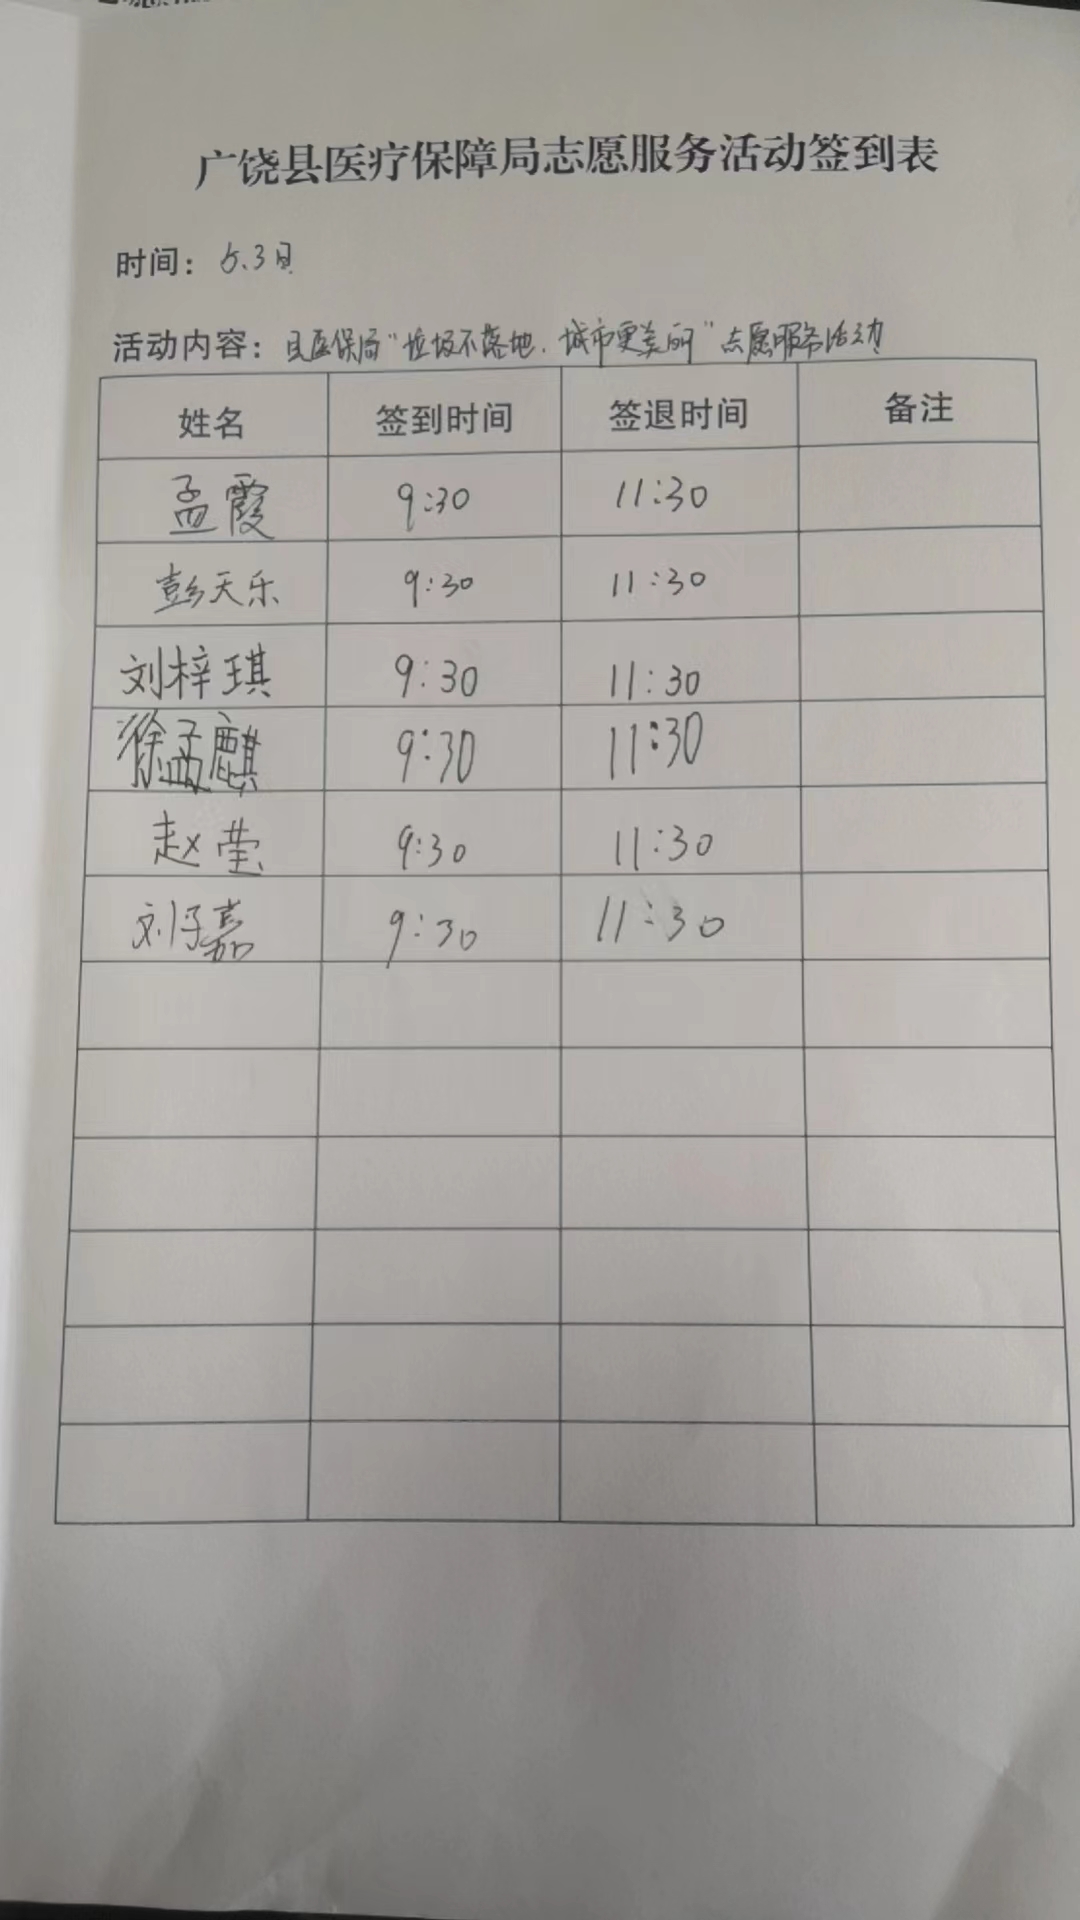 广饶县医疗保障局志愿服务活动签到表
时间：5.3日
活动内容：县医保局“垃圾不落地，城市更美丽”志愿服务活动
姓名 签到时间 签退时间 备注
孟霞 9:30 11:30
彭天乐 9:30 11:30
刘梓琪 9:30 11:30
徐孟麒 9:30 11:30
赵莹 9:30 11:30
刘子嘉 9:30 11:30